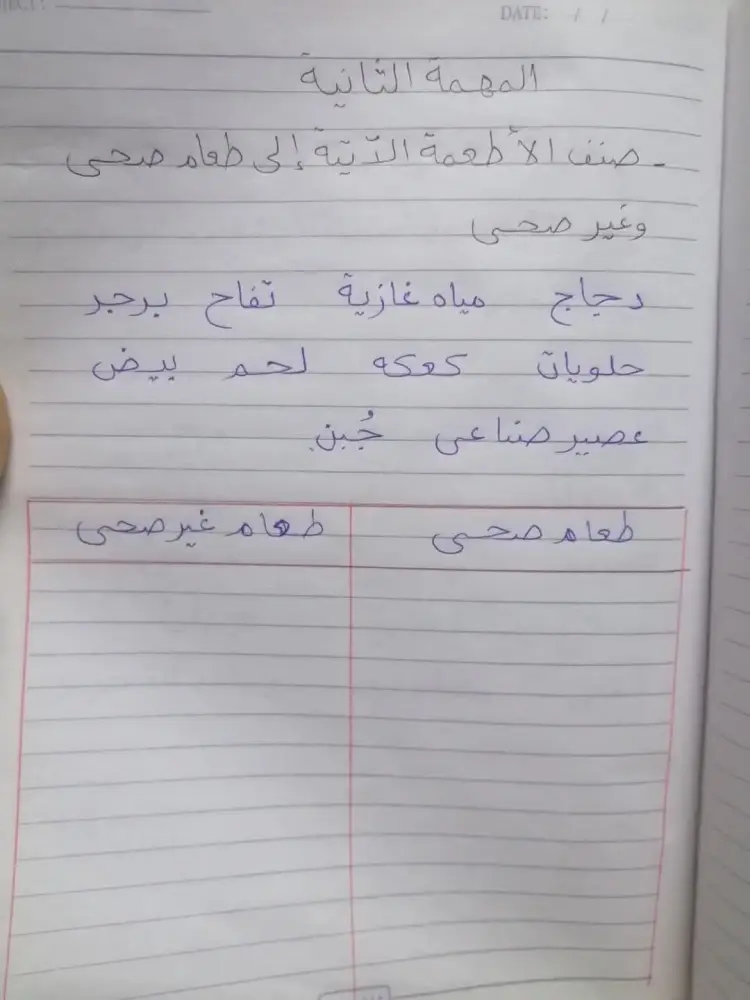 DATE: / /
المهمة الثانية
- صنف الأطعمة الآتية إلى طعام صحى
وغير صحى
دجاج مياه غازية تفاح برجر
حلويات كعكه لحم بيض
عصير صناعى جُبن
طعام صحى طعام غير صحى